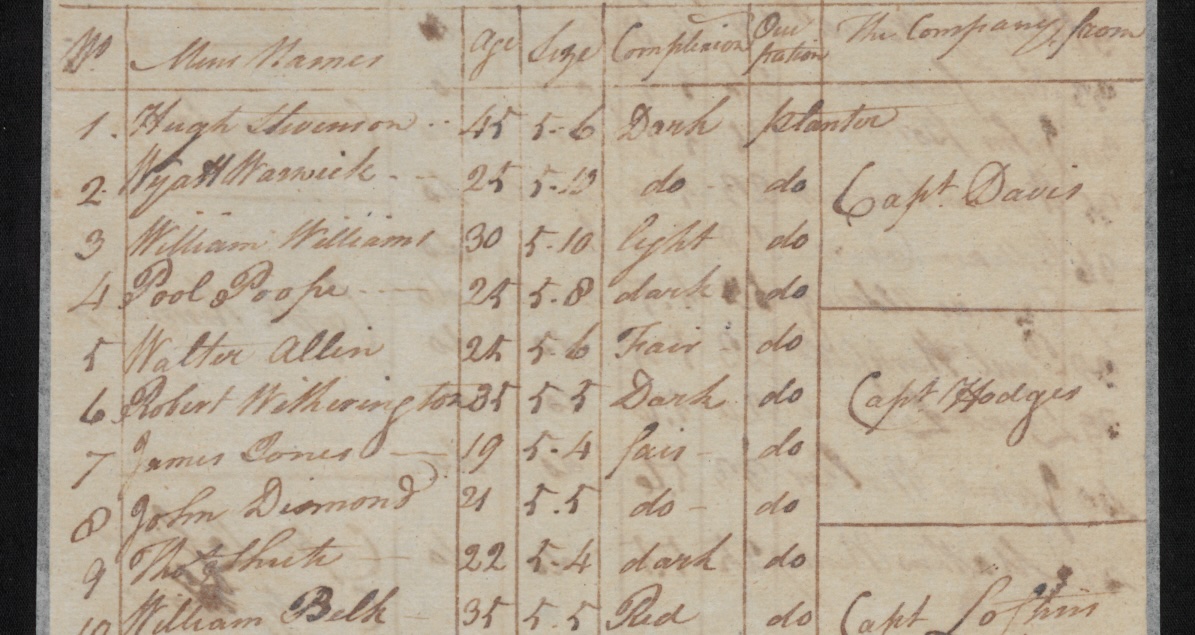 No Mens Names Age Size Complexion Occupation The Company from
1. Hugh Stevenson 45 5-6 Dark planter
2. Wyatt Warwick 25 5-10 do do Capt. Davis
3 William Williams 30 5-10 light do
4 Pool Poope 25 5.8 dark do
5 Walter Allin 25 5-6 Fair do
6 Robert Witherington 35 5-5 Dark do Capt Hodges
7 James Jones 19 5-4 fair do
8 John Diomond 21 5.5 do do
9 Thos Shute 22 5-4 dark do
10 William Belk 35 5.5 Red do Capt Loftins